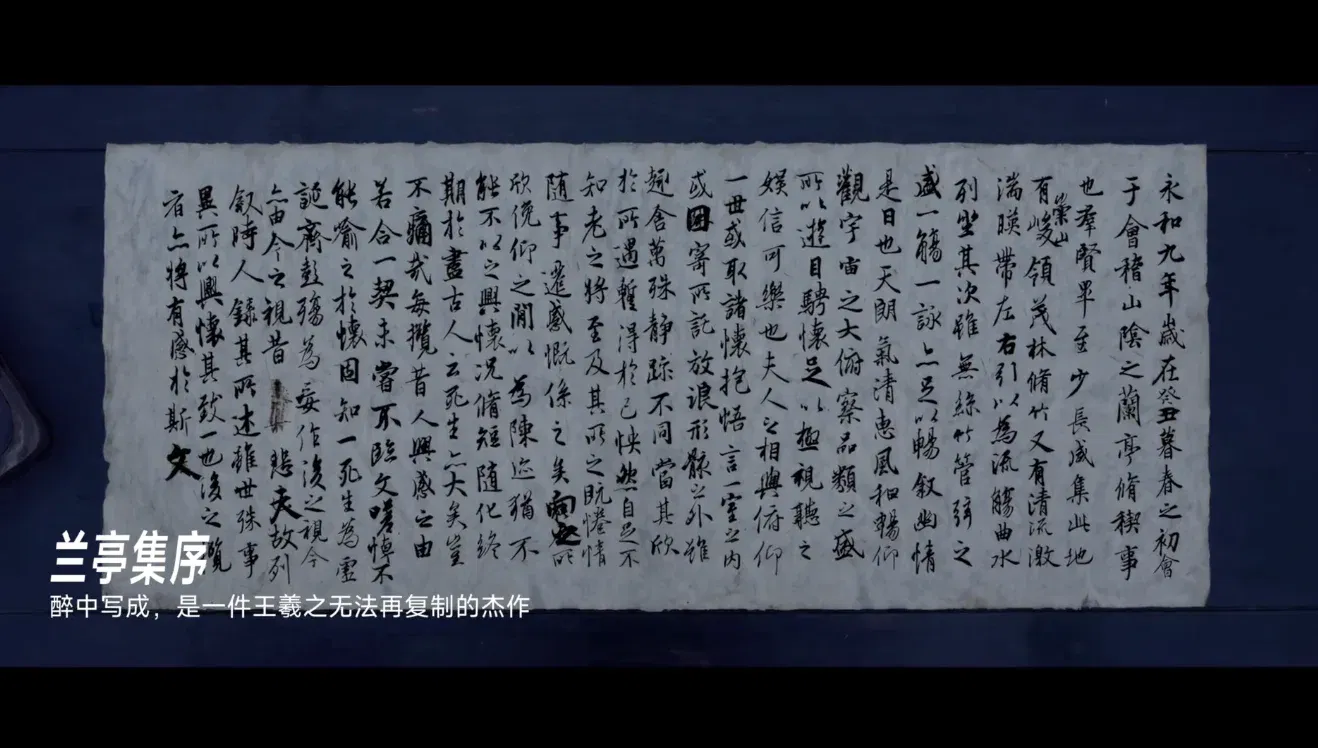 永和九年歲在癸丑暮春之初會
于會稽山陰之蘭亭脩稧事
也羣賢畢至少長咸集此地
有崇山峻領茂林脩竹又有清流激
湍暎帶左右引以為流觴曲水
列坐其次雖無絲竹管弦之
盛一觴一詠亦足以暢叙幽情
是日也天朗氣清惠風和暢仰
觀宇宙之大俯察品類之盛
所以遊目騁懷足以極視聽之
娛信可樂也夫人之相與俯仰
一世或取諸懷抱悟言一室之內
或因寄所託放浪形骸之外雖
趣舍萬殊静躁不同當其欣
於所遇暫得於己怏然自足不
知老之將至及其所之既惓情
隨事遷感慨係之矣向之所
欣俛仰之閒以為陳迹猶不
能不以之興懷况脩短隨化終
期於盡古人云死生亦大矣豈
不痛哉每攬昔人興感之由
若合一契未嘗不臨文嗟悼不
能喻之於懷固知一死生為虛
誕齊彭殤為妄作後之視今
亦由今之視昔悲夫故列
叙時人錄其所述雖世殊事
異所以興懷其致一也後之覽
者亦將有感於斯文
兰亭集序
醉中写成，是一件王羲之无法再复制的杰作